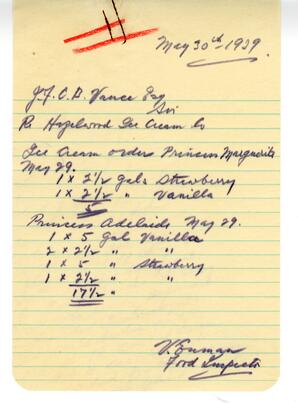 May 30th - 1939
J.F.C.B. Vance Esq
Sir
Re Hazelwood Ice Cream Co
Ice Cream orders Princess Marguerite
May 29.
1 x 2½ gals Strawberry
1 x 2½ " Vanilla
5
Princess Adelaide May 29.
1 x 5 gal Vanilla
2 x 2½ " "
1 x 5 " Strawberry
1 x 2½ " "
17½ "
Food Inspector